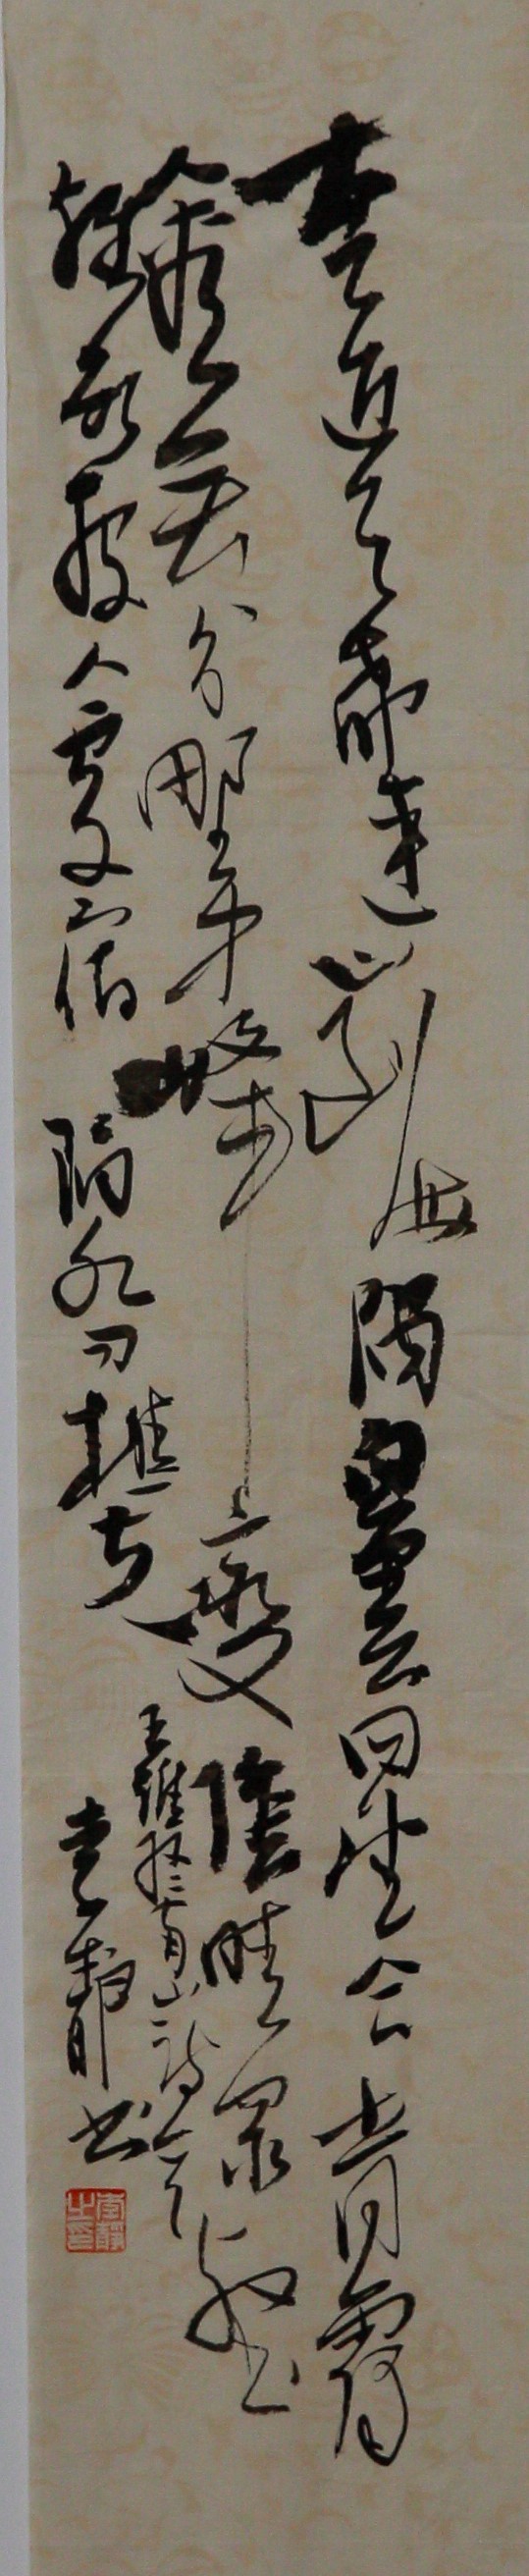 太乙近天都連山到海隅白雲回望合青靄
入看無分野中峰變陰晴眾壑
殊欲投人處宿隔水問樵夫
王維終南山詩一首
李靜書
李靜之印